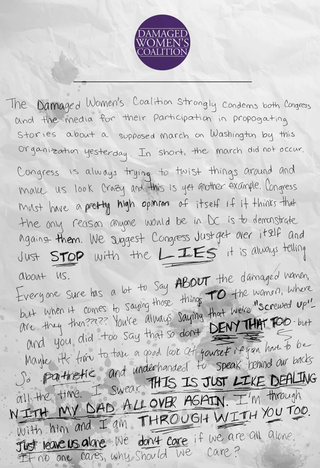 DAMAGED
WOMEN'S
COALITION
The Damaged Women's Coalition Strongly Condemns both Congress
and the media for their participation in propogating
Stories about a supposed march on Washington by this
organization yesterday. In short, the march did not occur.
Congress is always trying to twist things around and
make us look crazy and this is yet another example. Congress
must have a pretty high opinion of itself if it thinks that
the only reason anyone would be in DC is to demonstrate
against them. We suggest Congress Just get over itself and
Just STOP with the LIES it is always telling
about us.
Everyone sure has a lot to say ABOUT the damaged women,
but when it comes to saying those things TO the women, where
are they then????? You're always saying that we're "screwed up"
and you did too say that so don't DENY THAT TOO but
Maybe it's time to take a good look at yourself if you have to be
So pathetic and underhanded to speak behind our backs
all the time. I swear THIS IS JUST LIKE DEALING
WITH MY DAD ALL OVER AGAIN. I'm through
with him and I am THROUGH WITH YOU TOO.
Just leave us alone. We don't care if we are all alone.
If no one cares, why should we care?